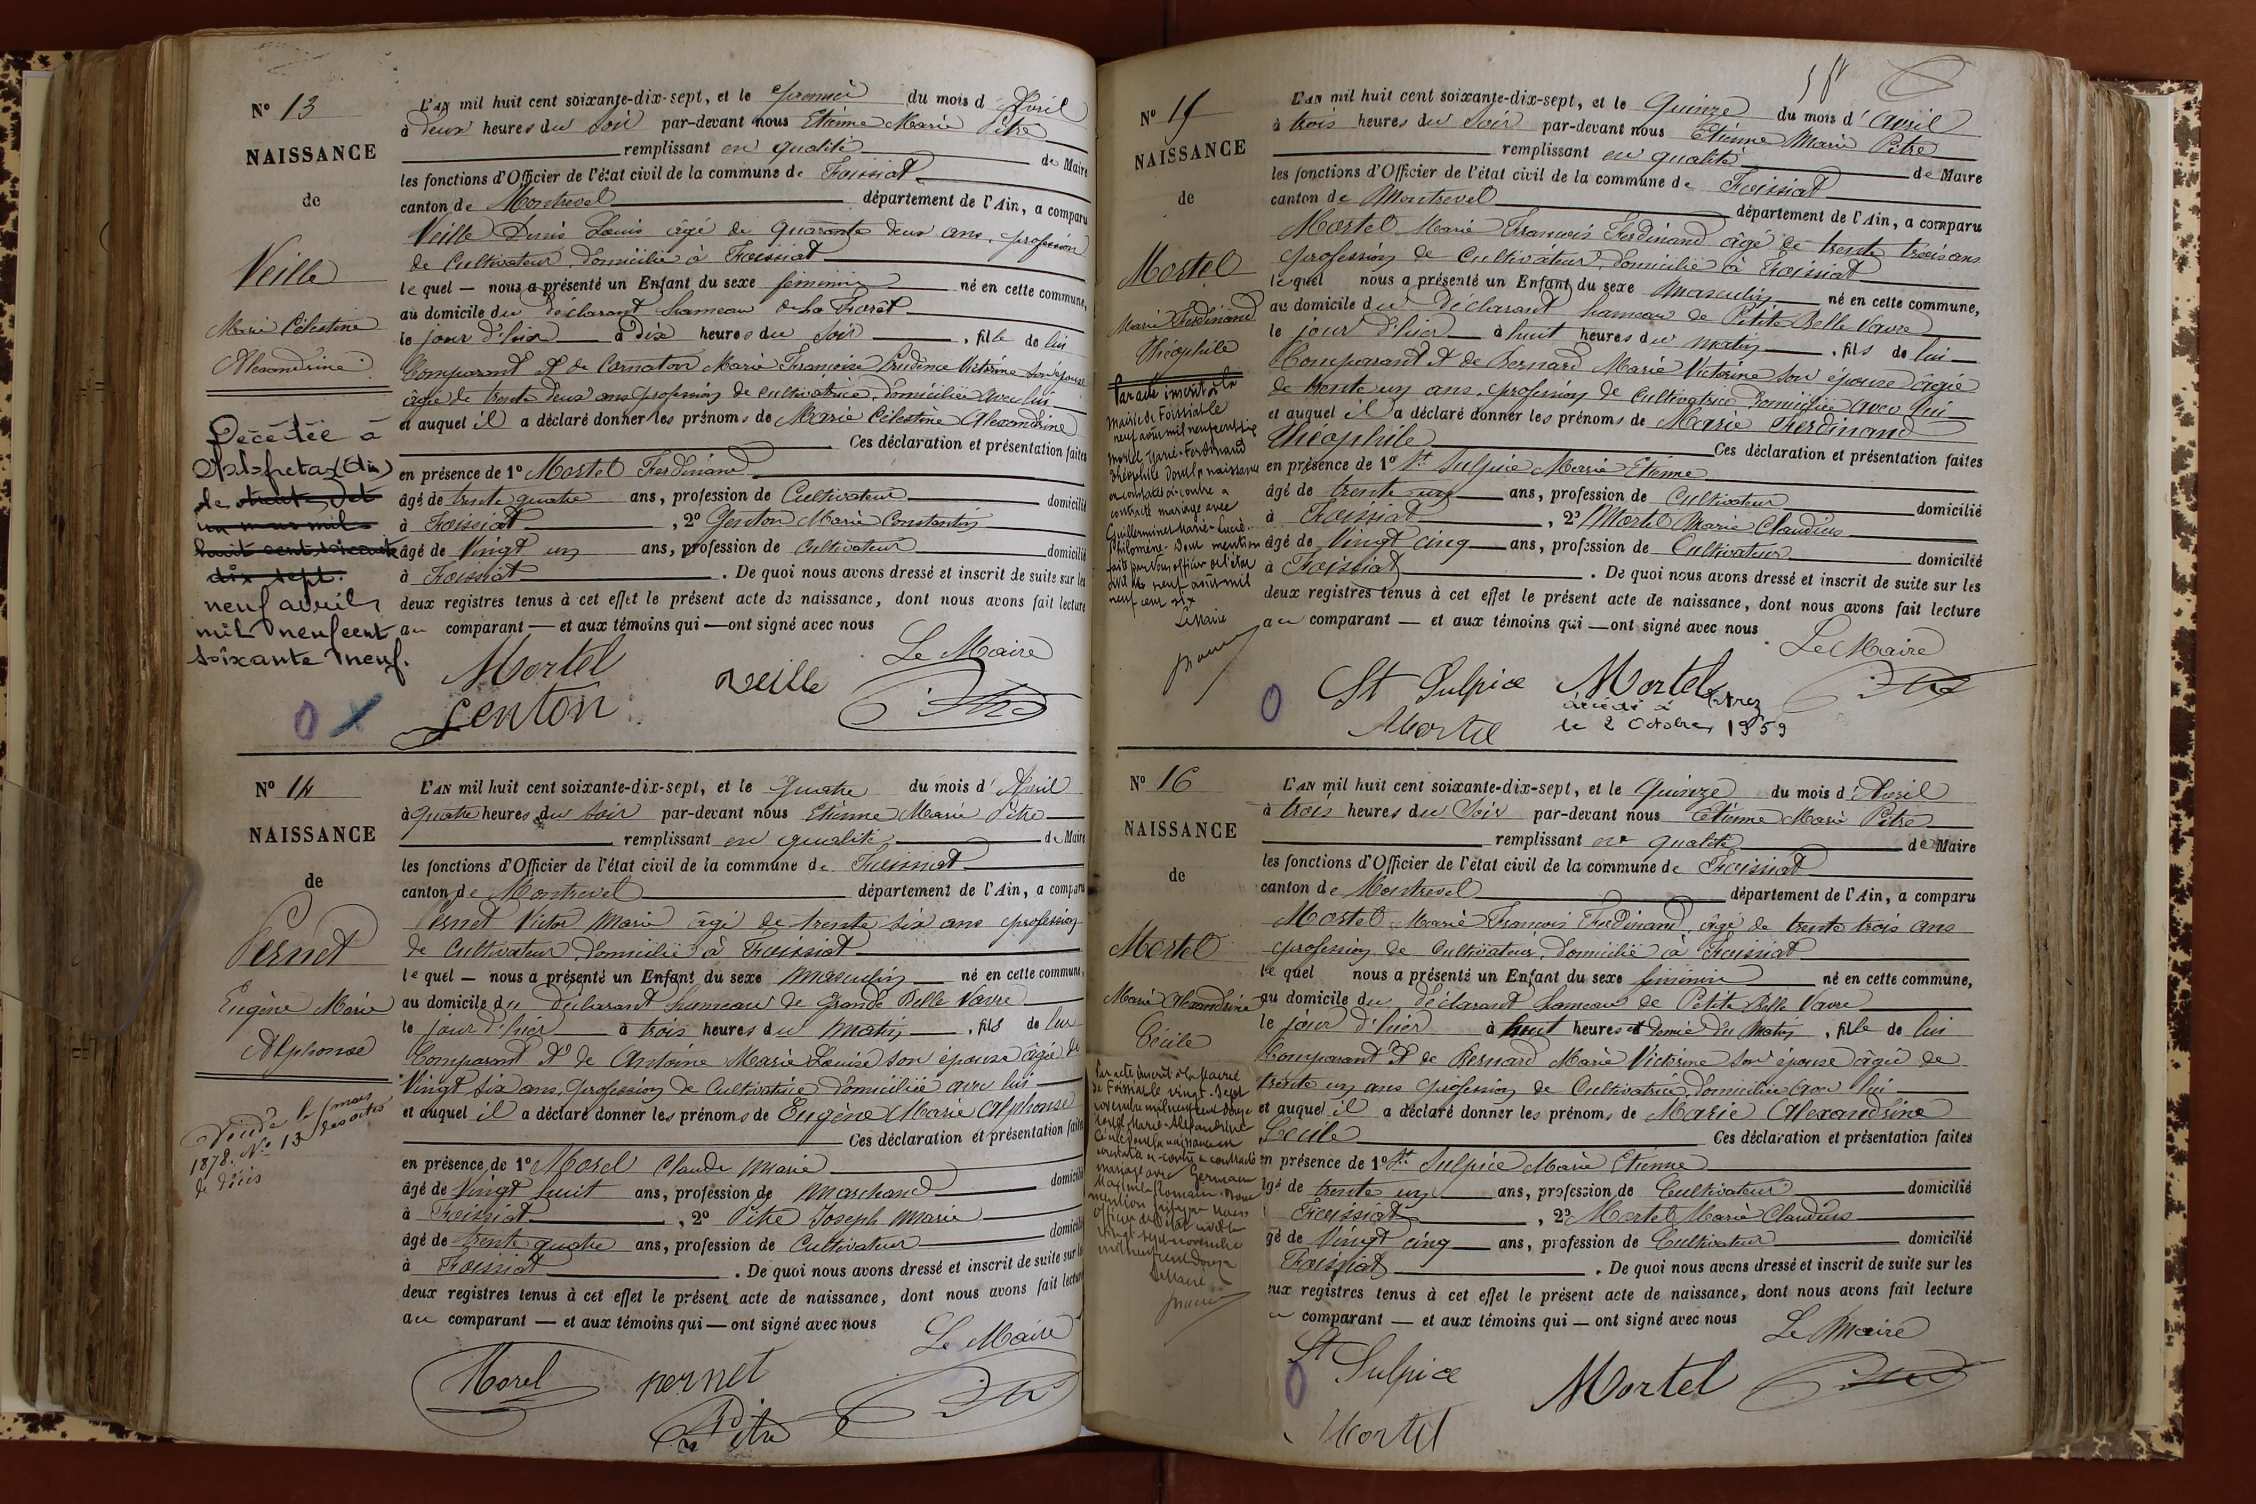 N° 13
NAISSANCE
de
Veille
Marie Célestine
Alexandrine
Décédée à
(Ain)
de
neuf avril
mil neufcent
soixante neuf.
L'an mil huit cent soixante-dix-sept, et le premier du mois d'Avril
à deux heures du soir par-devant nous Etienne Marie Pitre
remplissant en qualité de Maire
les fonctions d'Officier de l'état civil de la commune de Foissiat
canton de Montrevel département de l'Ain, a comparu
Veille Denis Louis âgé de quarante deux ans, profession
de Cultivateur, domicilié à Foissiat
lequel — nous a présenté un Enfant du sexe féminin né en cette commune,
au domicile du déclarant hameau de la Foret
le jour d'hier à dix heures du soir, fille de lui
Comparant et de Carnaton Marie Françoise Prudence Victorine son épouse
âgée de trente deux ans profession de cultivatrice, domiciliée avec lui
et auquel il a déclaré donner les prénoms de Marie Célestine Alexandrine
Ces déclaration et présentation faites
en présence de 1° Mortel Ferdinand
âgé de trente quatre ans, profession de Cultivateur domicilié
à Foissiat, 2° Genton Marie Constantin
âgé de Vingt un ans, profession de Cultivateur domicilié
à Foissiat. De quoi nous avons dressé et inscrit de suite sur les
deux registres tenus à cet effet le présent acte de naissance, dont nous avons fait lecture
au comparant — et aux témoins qui — ont signé avec nous
Le Maire
Mortel veille
Genton
N° 14
NAISSANCE
de
Pernet
Eugène Marie
Alphonse
1878. N° 13
de décès
L'an mil huit cent soixante-dix-sept, et le quatre du mois d'Avril
à quatre heures du soir par-devant nous Etienne Marie Pitre
remplissant en qualité de Maire
les fonctions d'Officier de l'état civil de la commune de Foissiat
canton de Montrevel département de l'Ain, a comparu
Pernet Victor Marie âgé de trente six ans profession
de Cultivateur, domicilié à Foissiat
lequel — nous a présenté un Enfant du sexe masculin né en cette commune,
au domicile du déclarant hameau de Grande Belle Vavre
le jour d'hier à trois heures du matin, fils de lui
Comparant et de Antoine Marie Louise son épouse âgée de
Vingt six ans, profession de Cultivatrice domiciliée avec lui
et auquel il a déclaré donner les prénoms de Eugène Marie Alphonse
Ces déclaration et présentation faites
en présence de 1° Morel Claude Marie
âgé de Vingt huit ans, profession de Marchand domicilié
à Foissiat, 2° Pitre Joseph Marie
âgé de trente quatre ans, profession de Cultivateur domicilié
à Foissiat. De quoi nous avons dressé et inscrit de suite sur les
deux registres tenus à cet effet le présent acte de naissance, dont nous avons fait lecture
au comparant — et aux témoins qui — ont signé avec nous
Le Maire
Morel pernet
Pitre
N° 15
NAISSANCE
de
Mortel
Marie Ferdinand
Théophile
Par acte inscrit à la
mairie de Foissiat le
neuf août mil neuf cent six
Mortel Marie-Ferdinand
Théophile dont la naissance
est constatée ci-contre a
contracté mariage avec
Guillerminet Marie-Lucie
Philomène. Dont mention
faite par Nous officier de l'état
civil le neuf août mil
neuf cent six
Le Maire
L'an mil huit cent soixante-dix-sept, et le quinze du mois d'avril
à trois heures du soir par-devant nous Etienne Marie Pitre
remplissant en qualité de Maire
les fonctions d'Officier de l'état civil de la commune de Foissiat
canton de Montrevel département de l'Ain, a comparu
Mortel Marie François Ferdinand âgé de trente trois ans
profession de Cultivateur, domicilié à Foissiat
lequel nous a présenté un Enfant du sexe masculin né en cette commune,
au domicile du déclarant hameau de Petite Belle Vavre
le jour d'hier à huit heures du matin, fils de lui
Comparant et de Bernard Marie Victorine son épouse âgée
de trente un ans, profession de Cultivatrice domiciliée avec lui
et auquel il a déclaré donner les prénoms de Marie Ferdinand
Théophile Ces déclaration et présentation faites
en présence de 1° St Sulpice Marie Etienne
âgé de trente un ans, profession de Cultivateur domicilié
à Foissiat, 2° Mortel Marie Claudius
âgé de Vingt cinq ans, profession de Cultivateur domicilié
à Foissiat. De quoi nous avons dressé et inscrit de suite sur les
deux registres tenus à cet effet le présent acte de naissance, dont nous avons fait lecture
au comparant — et aux témoins qui — ont signé avec nous
Le Maire
St Sulpice Mortel
décédé à Etrez
Mortel le 2 Octobre 1959
N° 16
NAISSANCE
de
Mortel
Marie Alexandrine
Cécile
Par acte inscrit à la Mairie
de Foissiat le vingt-sept
novembre mil neuf cent douze
Mortel Marie-Alexandrine
Cécile dont la naissance est
constatée ci-contre a contracté
mariage avec Germain
Romain. Dont
mention faite par Nous
officier de l'état civil le
vingt-sept novembre
mil neuf cent douze
Le Maire
L'an mil huit cent soixante-dix-sept, et le quinze du mois d'Avril
à trois heures du Soir par-devant nous Etienne Marie Pitre
remplissant en qualité de Maire
les fonctions d'Officier de l'état civil de la commune de Foissiat
canton de Montrevel département de l'Ain, a comparu
Mortel Marie François Ferdinand, âgé de trente trois ans
profession de Cultivateur, domicilié à Foissiat
lequel nous a présenté un Enfant du sexe féminin né en cette commune,
au domicile du déclarant hameau de Petite Belle Vavre
le jour d'hier à huit heures et demie du matin, fille de lui
Comparant et de Bernard Marie Victorine son épouse âgée de
trente un ans profession de Cultivatrice, domiciliée avec lui
et auquel il a déclaré donner les prénoms de Marie Alexandrine
Cécile Ces déclaration et présentation faites
en présence de 1° St Sulpice Marie Etienne
âgé de trente un ans, profession de Cultivateur domicilié
Foissiat, 2° Mortel Marie Claudius
âgé de Vingt cinq ans, profession de Cultivateur domicilié
Foissiat. De quoi nous avons dressé et inscrit de suite sur les
deux registres tenus à cet effet le présent acte de naissance, dont nous avons fait lecture
au comparant — et aux témoins qui — ont signé avec nous
Le Maire
St Sulpice Mortel
Mortel